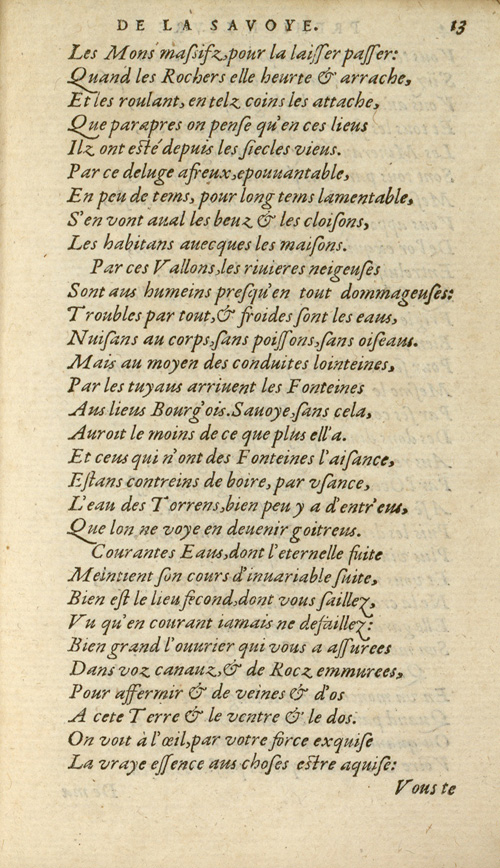 DE LA SAVOYE. 13
Les Mons maſsifz,pour la laiſſer paſſer:
Quand les Rochers elle heurte & arrache,
Et les roulant, en telz coins les attache,
Que parapres on penſe qu'en ces lieus
Ilz ont eſté depuis les ſiecles vieus.
Par ce deluge afreux,epouuantable,
En peu de tems, pour long tems lamentable,
S'en vont aual les beuz & les cloiſons,
Les habitans auecques les maiſons.
Par ces Vallons,les riuieres neigeuſes
Sont aus humeins preſqu'en tout dommageuſes:
Troubles par tout,& froides ſont les eaus,
Nuiſans au corps,ſans poiſſons,ſans oiſeaus.
Mais au moyen des conduites lointeines,
Par les tuyaus arriuent les Fonteines
Aus lieus Bourg'ois.Sauoye,ſans cela,
Auroit le moins de ce que plus ell'a.
Et ceus qui n'ont des Fonteines l'aiſance,
Eſtans contreins de boire, par vſance,
L'eau des Torrens,bien peu y a d'entr'eus,
Que lon ne voye en deuenir goitreus.
Courantes Eaus,dont l'eternelle fuite
Meintient ſon cours d'inuariable ſuite,
Bien eſt le lieu fecond,dont vous ſaillez,
Vu qu'en courant iamais ne defaillez:
Bien grand l'ouurier qui vous a aſſurees
Dans voz canauz,& de Rocz emmurees,
Pour affermir & de veines & d'os
A cete Terre & le ventre & le dos.
On voit à l'œil,par votre force exquiſe
La vraye eſſence aus choſes eſtre aquiſe:
Vous te